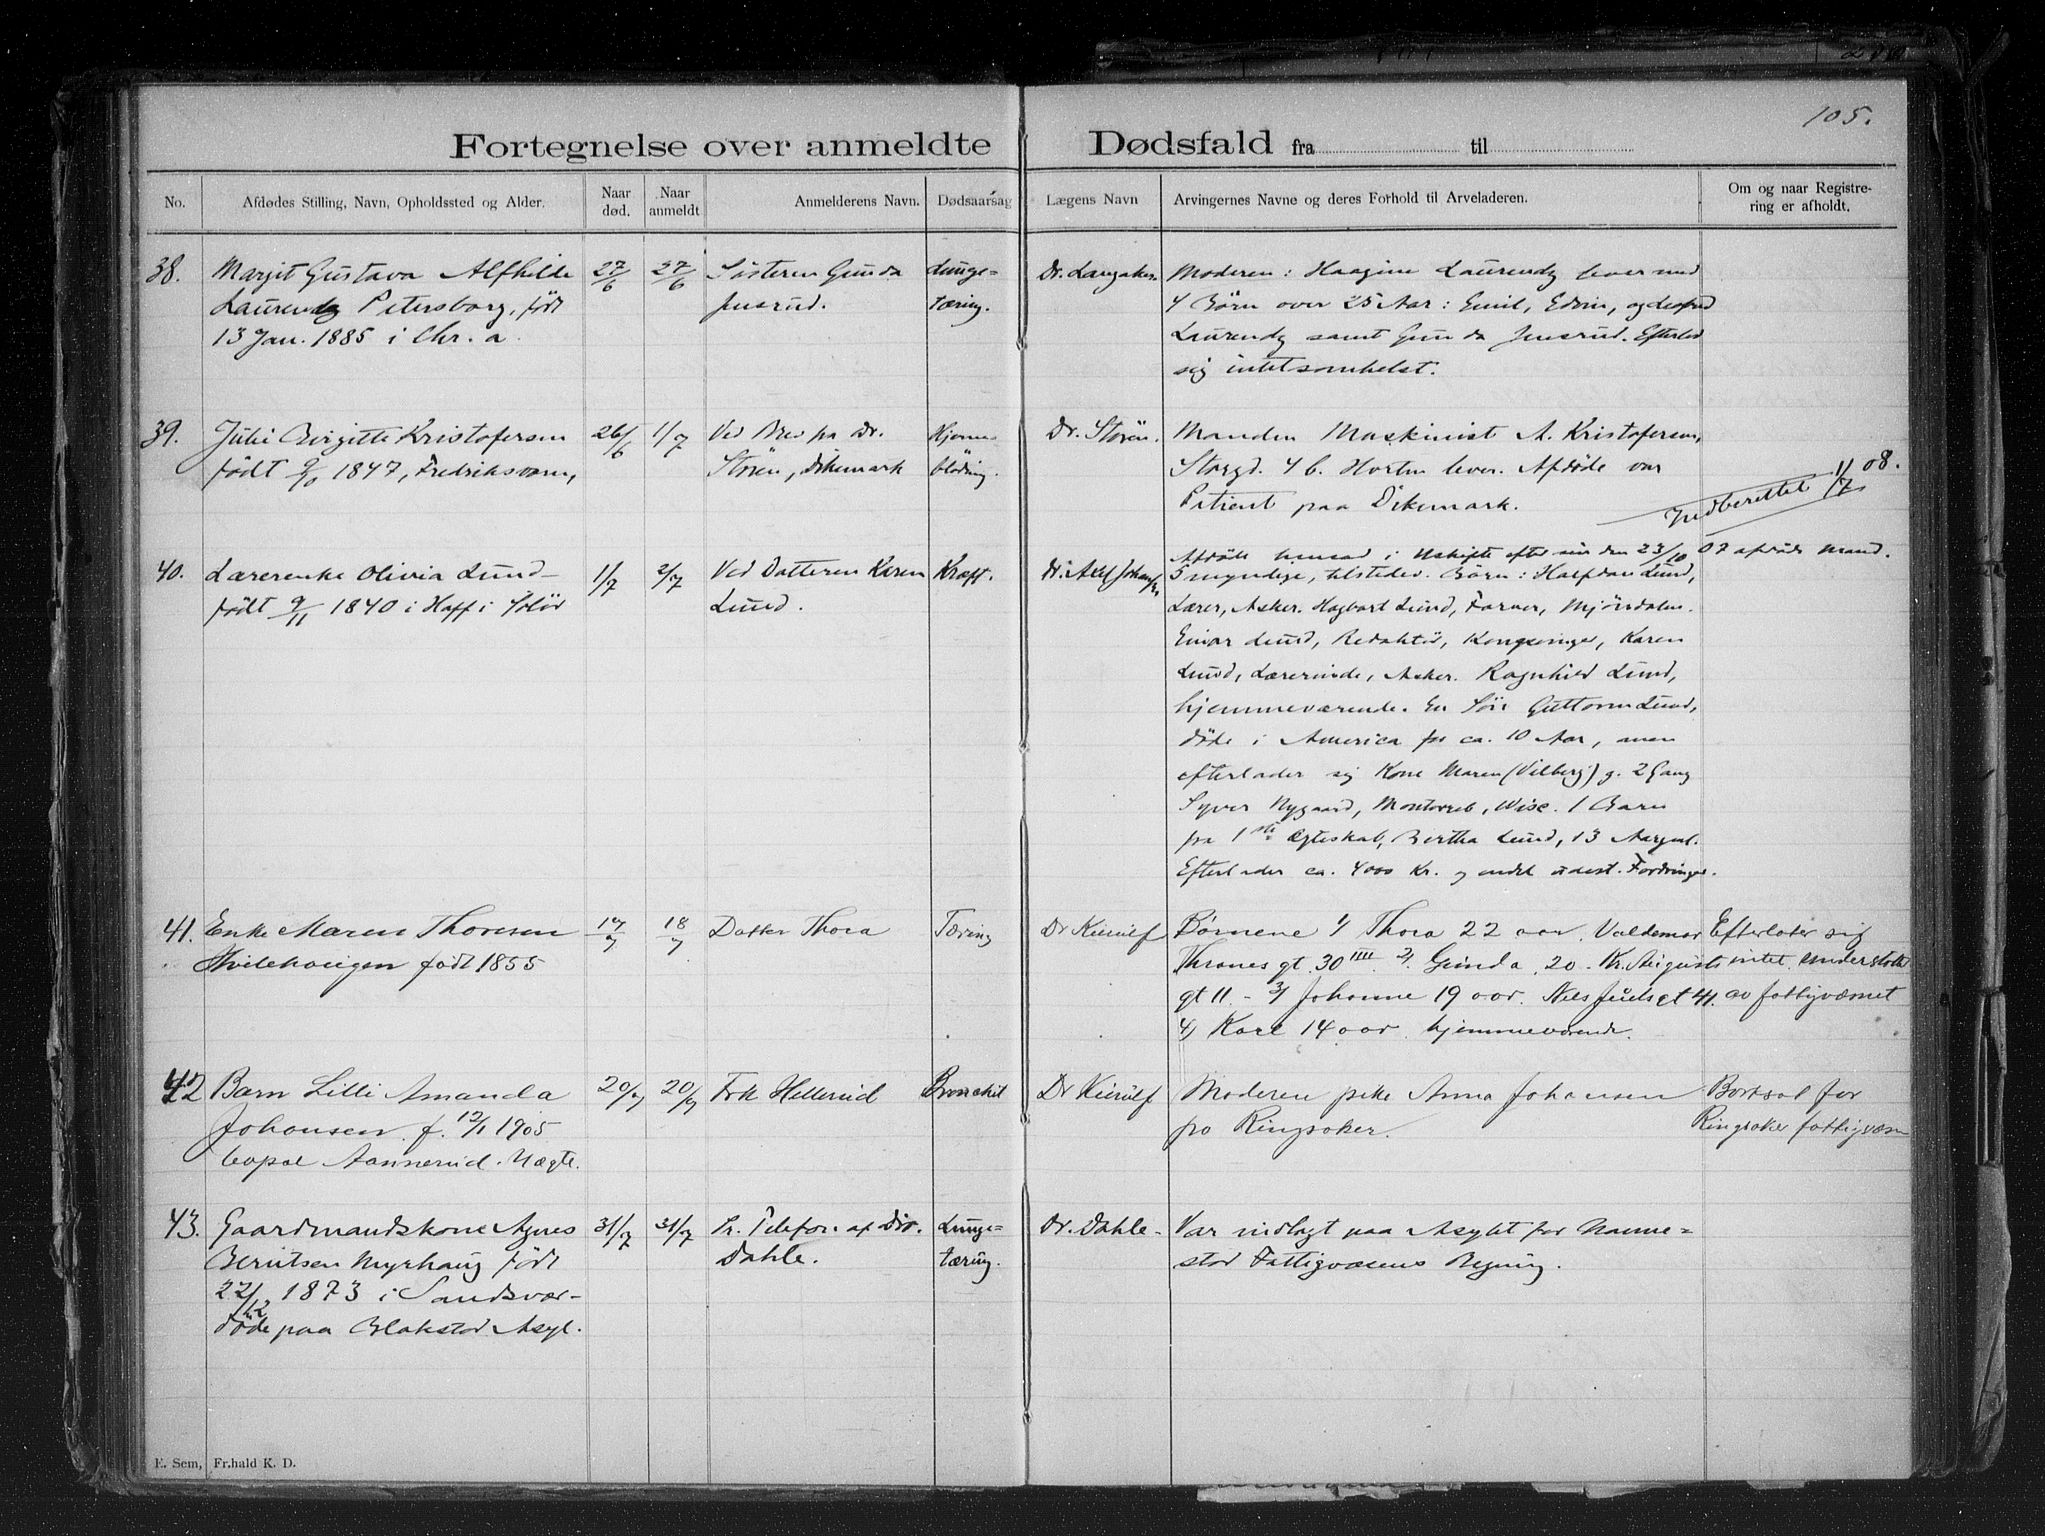 105.
Fortegnelse over anmeldte Dødsfald fra til
No.
Afdødes Stilling, Navn, Opholdssted og Alder.
Naar død.
Naar anmeldt
Anmelderens Navn.
Dødsaarsag
Lægens Navn
Arvingernes Navne og deres Forhold til Arveladeren.
Om og naar Registre-
ring er afholdt.
38.
Margit Gustava Alfhilde
Laurendz Petersborg, født
13 Jan. 1885 i Chr.a.
27/6
27/6
Søsteren Gunda
Jusrud.
Lunge-
tæring.
Dr. Langaker.
Moderen: Haagine Laurendz lever med
4 Børn over 25 Aar: Emil, Edvin,
Laurendz samt Gunda Jusrud. Efterlod
sig intetsomhelst.
39.
Julie Birgitte Kristofersen
født 9/ 1847, Fredriksværn,
26/6
1/7
Ved Brev fra Dr.
Støren, Dikemark
Hjerne-
blødning.
Dr. Støren.
Manden Maskinist A. Kristofersen,
Storgd. 46. Horten lever. Afdøde var
Patient paa Dikemark.
Indberettet 11/7 08.
40.
Lærerenke Olivia Lund
født 9/11 1840 i Hoff i Solør
1/7
2/7
Ved Datteren Karen
Lund.
Kræft.
Dr. Axel Johansen
Afdøde hensad i Uskifte efter sin den 23/10 07 afdøde Mand.
5 myndige, tilstedev. Børn: Halfdan Lund,
Lærer, Asker. Hagbart Lund, Farver, Mjøndalen.
Einar Lund, Redaktør, Kongsvinger, Karen
Lund, Lærerinde, Asker. Ragnhild Lund,
hjemmeværende. En Søn Guttorm Lund,
døde i America for ca. 10 Aar, men
efterlader sig Kone Maren (Vilberg) g. 2 Gang
Syver Nygaard, Wisc. 1 Barn
fra 1ste Ægteskab, Bertha Lund, 13 Aar gml.
Efterlader ca. 4000 Kr. og endel udest. Fordringer.
41.
Enke Maren Thoresen
Hvilehaugen født 1855
17/7
18/7
Datter Thora
Tæring
Dr Kierulf
Børnene 1/ Thora 22 aar. Valdemar
Thranes gt. 30 IIII 2/ Gunda 20 - Kr. Augusts
gt 11. - 3/ Johanne 19 aar. Niels Juels gt 41.
4/ Karl 14 aar hjemmeværende.
Efterlater sig
intet. understøttet
av fattigvæsnet
42
Barn Lilli Amanda
Johansen f. 12/1 1905
Aannerud. Uægte.
20/7
20/7
Frk Hellerud
Bronchit
Dr Kierulf
Moderen pike Anna Johansen
fra Ringsaker.
Bortsat for
Ringsaker fattigvæsn
43.
Gaardmandskone Agnes
Berntsen Myrhaug født
22/12 1873 i Sandsvær-
døde paa Blakstad Asyl.
31/7
31/7
Pr. Telefon af Dir.
Dahle.
Lunge-
tæring.
Dr. Dahle-
Var indlagt paa Asylet for Nanne-
stad Fattigvæsens Regning.
E. Sem, Fr.hald K. D.